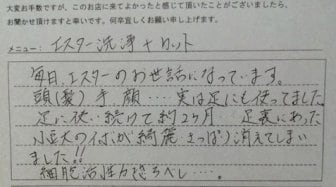 大変お手数ですが、このお店に来てよかったと感じて頂いたことがございましたら、
お聞かせ頂けますと幸いです。何卒宜しくお願い申し上げます。
メニュー：エステー洗浄＋カット
毎日、エスターのお世話になっています。
頭(髪)、手、顔……実は足にも使ってました
足に使い続けて約2ヶ月 足裏にあった
小豆大のイボが綺麗さっぱり消えてしまい
ました!!
細胞活性力恐るべし….